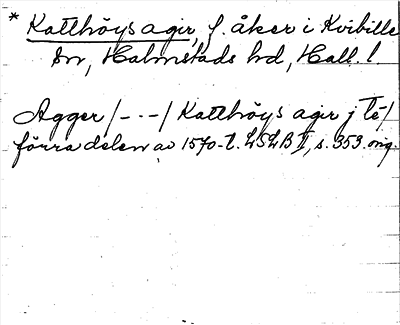 * Katthöys agir, f. åker i Kvibille
sn, Halmstads hd, Hall. l
Agger /---/ Katthöys agir j tē /
förra delen av 1570-t. LSLB II, s. 353. orig.